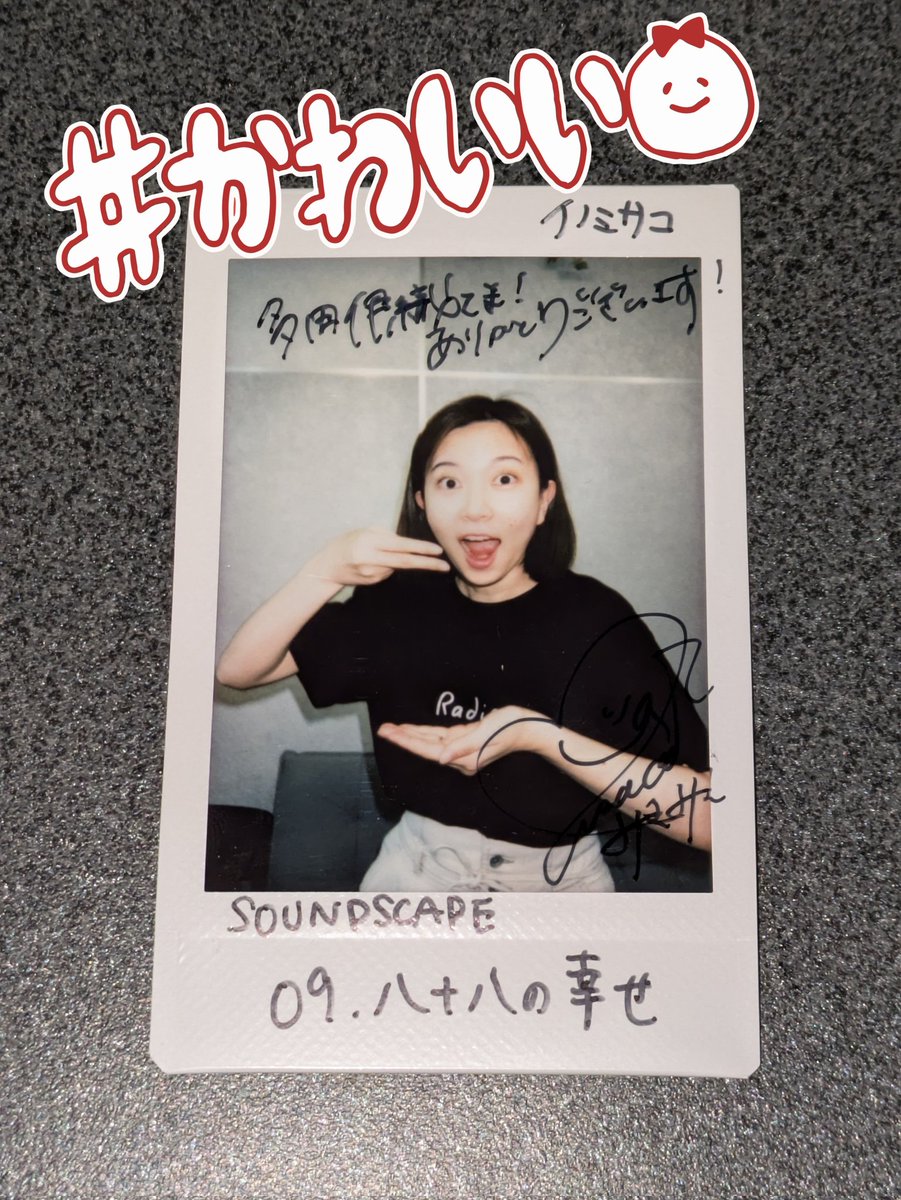 #かわいい
イノミサコ
ありがとうございます!
Radi
SOUNDSCAPE
09.八十八の幸せ